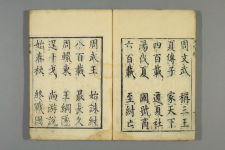 周文武　稱三王
夏傳子　家天下
四百載　遷夏社
湯伐夏　國號商
六百載　至紂亡
周武王　始誅紂
八百載　最長久
周轍東　王綱墜
逞干戈　尚游說
始春秋　終戰國